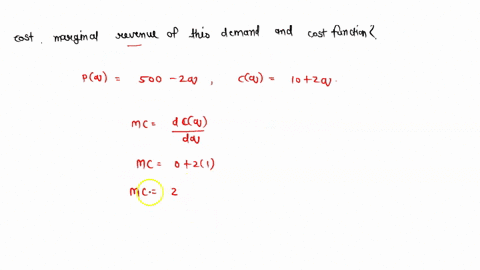 cost, marginal revenue of this demand and cost function?
P(q) = 500 - 2q, C(q) = 10+2q.
MC = dC(q)/dq
MC = 0+2(1)
MC = 2